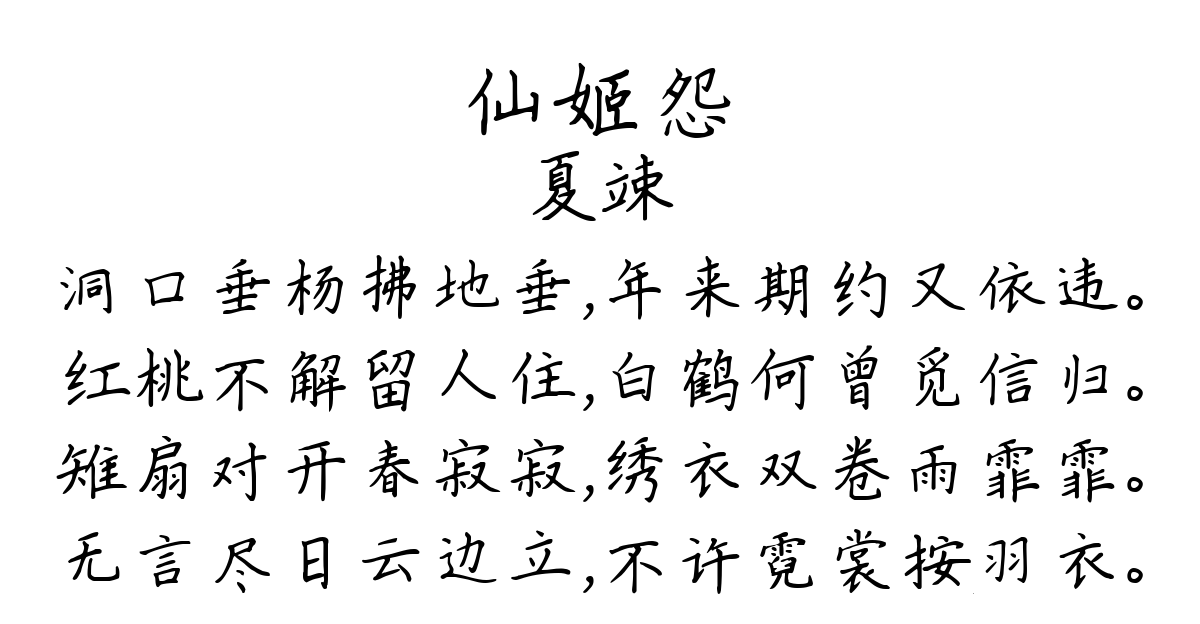 仙姬怨
夏竦
洞口垂杨拂地垂,年来期约又依违。
红桃不解留人住,白鹤何曾觅信归。
雉扇对开春寂寂,绣衣双卷雨霏霏。
无言尽日云边立,不许霓裳按羽衣。